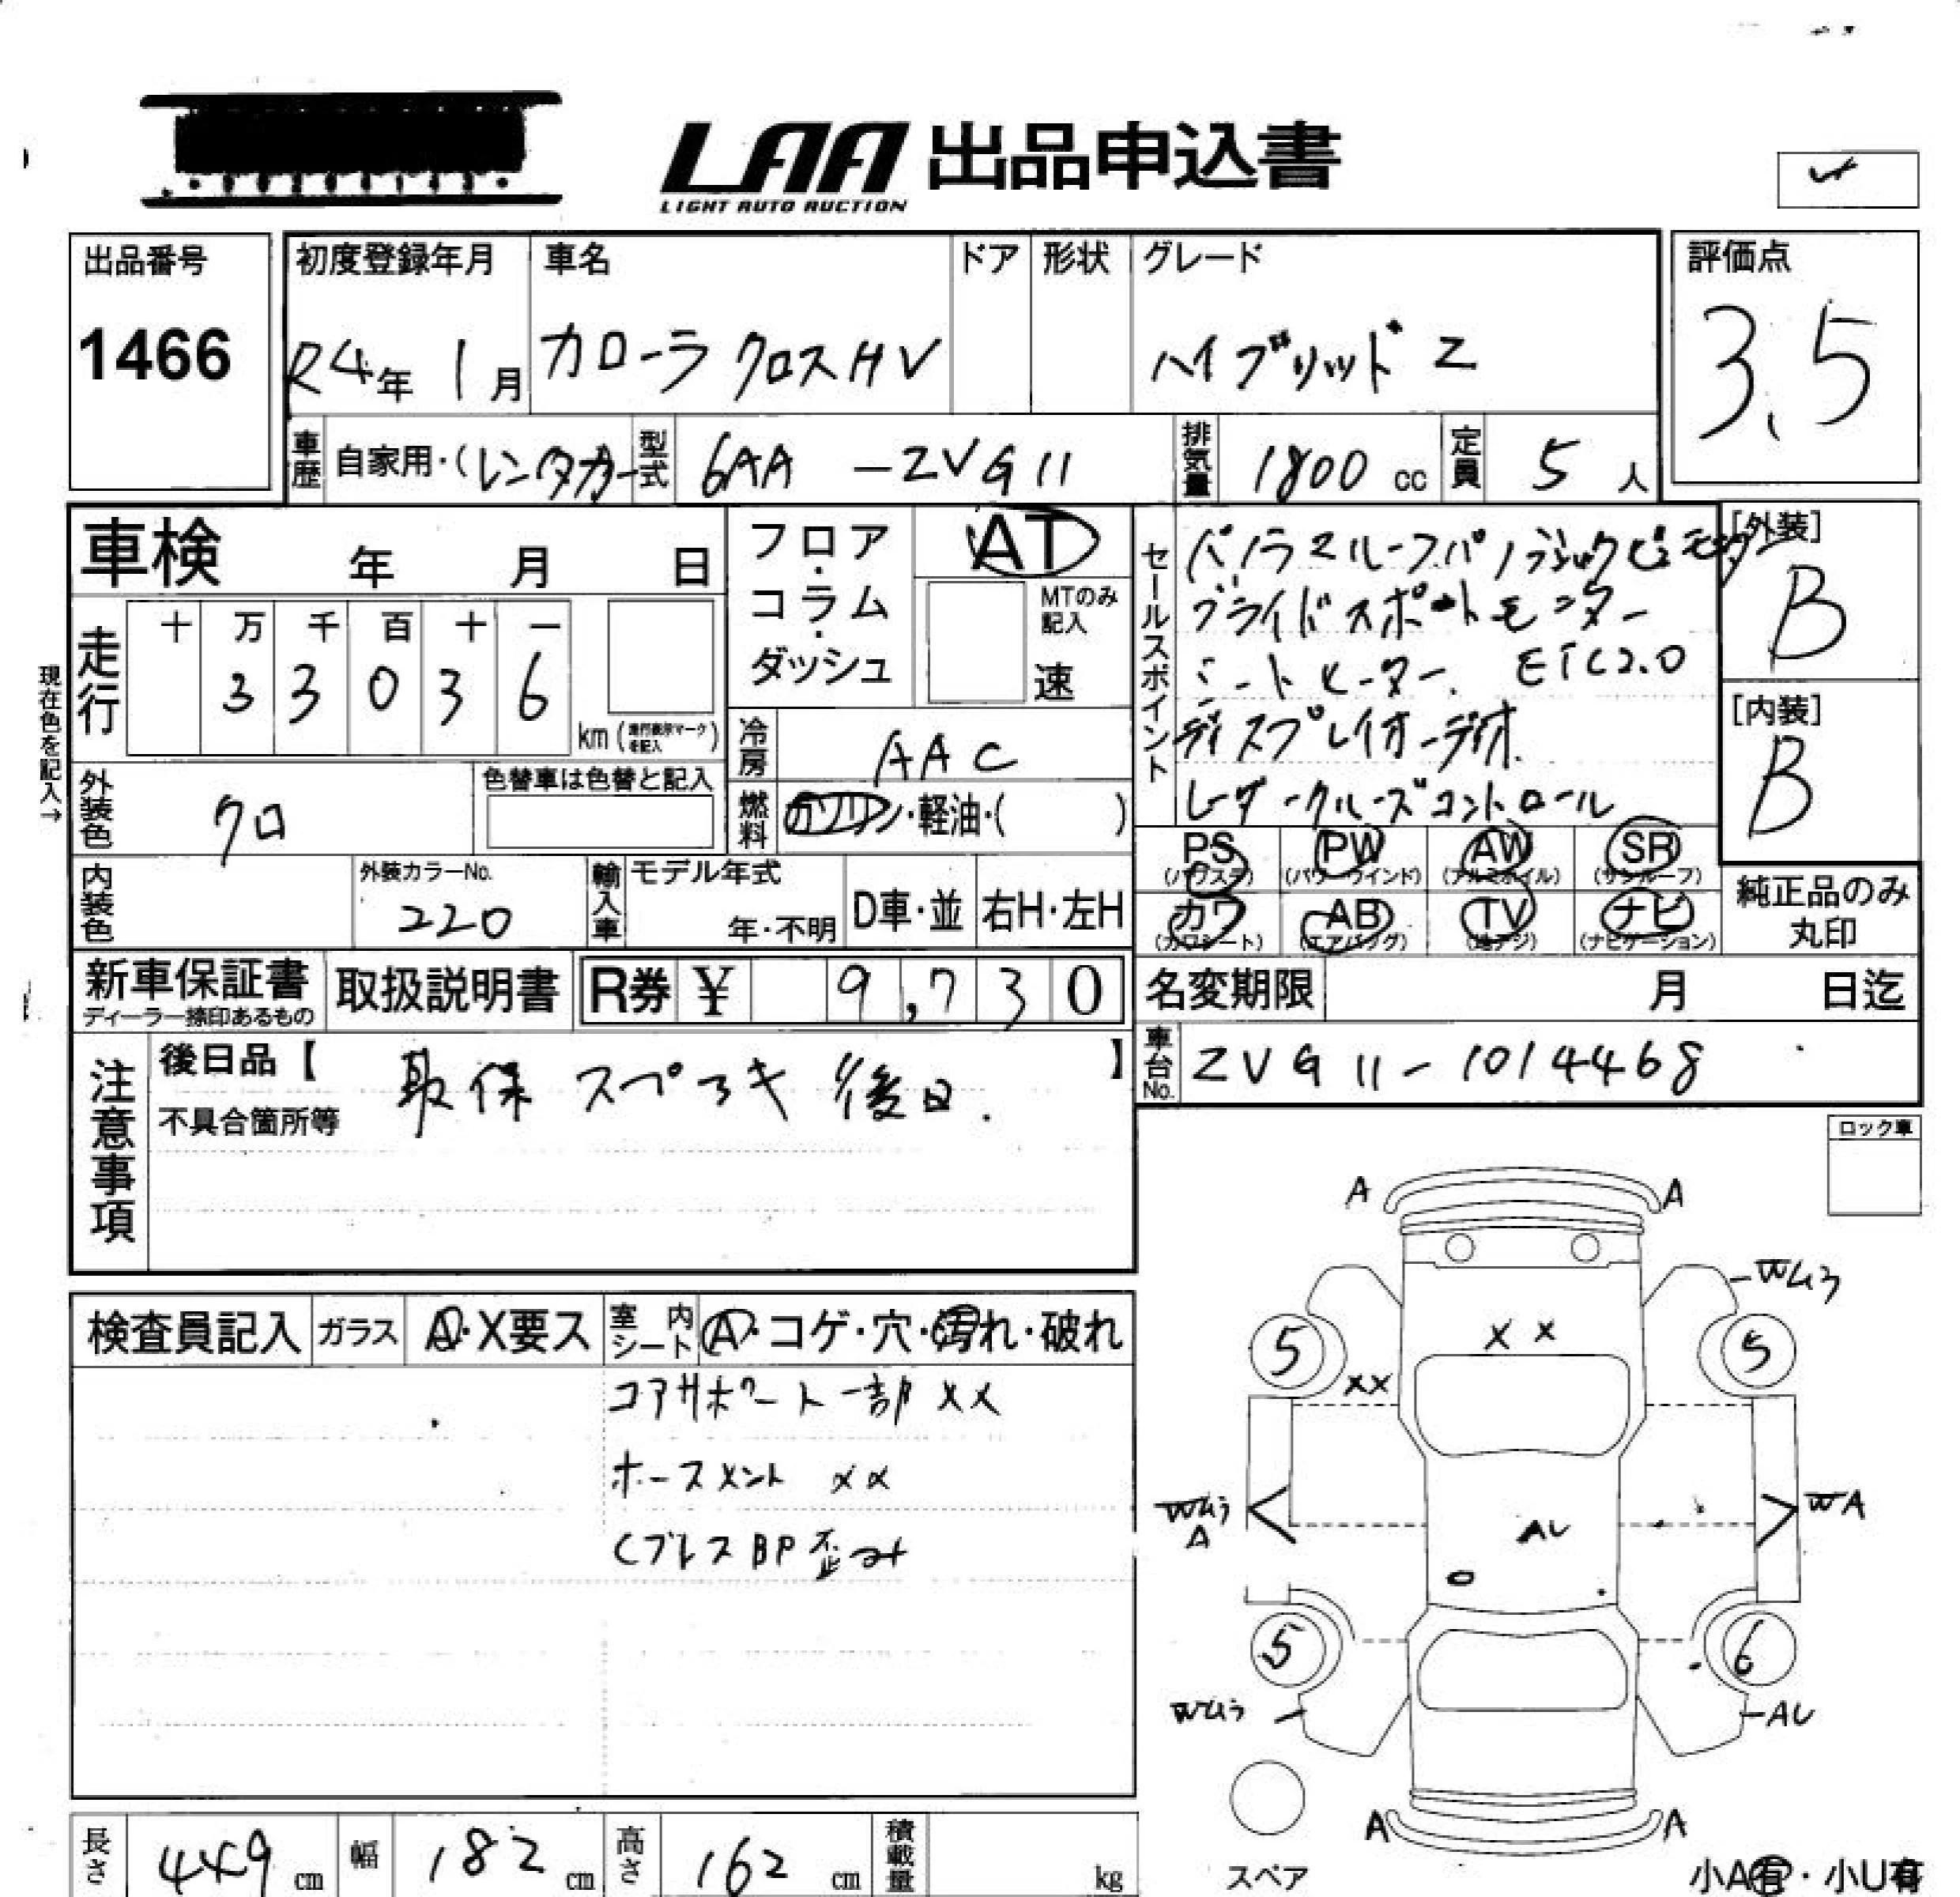 LAA 出品申込書
LIGHT AUTO AUCTION
出品番号
1466
初度登録年月
R4年 1月
車名
カローラクロスHV
ドア
形状
グレード
ハイブリッド Z
評価点
3.5
車歴
自家用・(レンタカー
型式
6AA -ZVG11
排気量
1800 cc
定員
5 人
車検 年 月 日
走行
十 万 千 百 十 一
3 3 0 3 6
km
現在色を記入→
フロア・コラム・ダッシュ
AT
MTのみ記入
速
冷房
AAC
燃料
ガソリン・軽油・( )
セールスポイント
パノラマルーフパノラミックビューモニター
ブラインドスポットモニター
シートヒーター. ETC2.0
ディスプレイオーディオ.
レーダークルーズコントロール
[外装]
B
[内装]
B
外装色
クロ
色替車は色替と記入
内装色
外装カラーNo.
220
輸入車
モデル年式
年・不明
D車・並
右H・左H
PS
(パワステ)
PW
(パワーウインド)
AW
(アルミホイル)
SR
(サンルーフ)
カワ
(カワシート)
AB
(エアバッグ)
TV
(地デジ)
ナビ
(ナビゲーション)
純正品のみ
丸印
新車保証書
ディーラー捺印あるもの
取扱説明書
R券 ¥ 9,730
名変期限 月 日迄
車台No.
ZVG11-1014468
注意事項
後日品【 】
取保 スプアキ 後日.
不具合箇所等
ロック車
検査員記入
ガラス
A・X要ス
室内シート
A・コゲ・穴・汚れ・破れ
コアサポート一部 XX
ホースメント XX
CブレスBP歪み
A A
Wムラ
X X
5 5
XX
Wムラ
A
WA
AU
5 6
Wムラ
AU
A A
スペア
小A有・小U有
長さ 449 cm
幅 182 cm
高さ 162 cm
積載量 kg